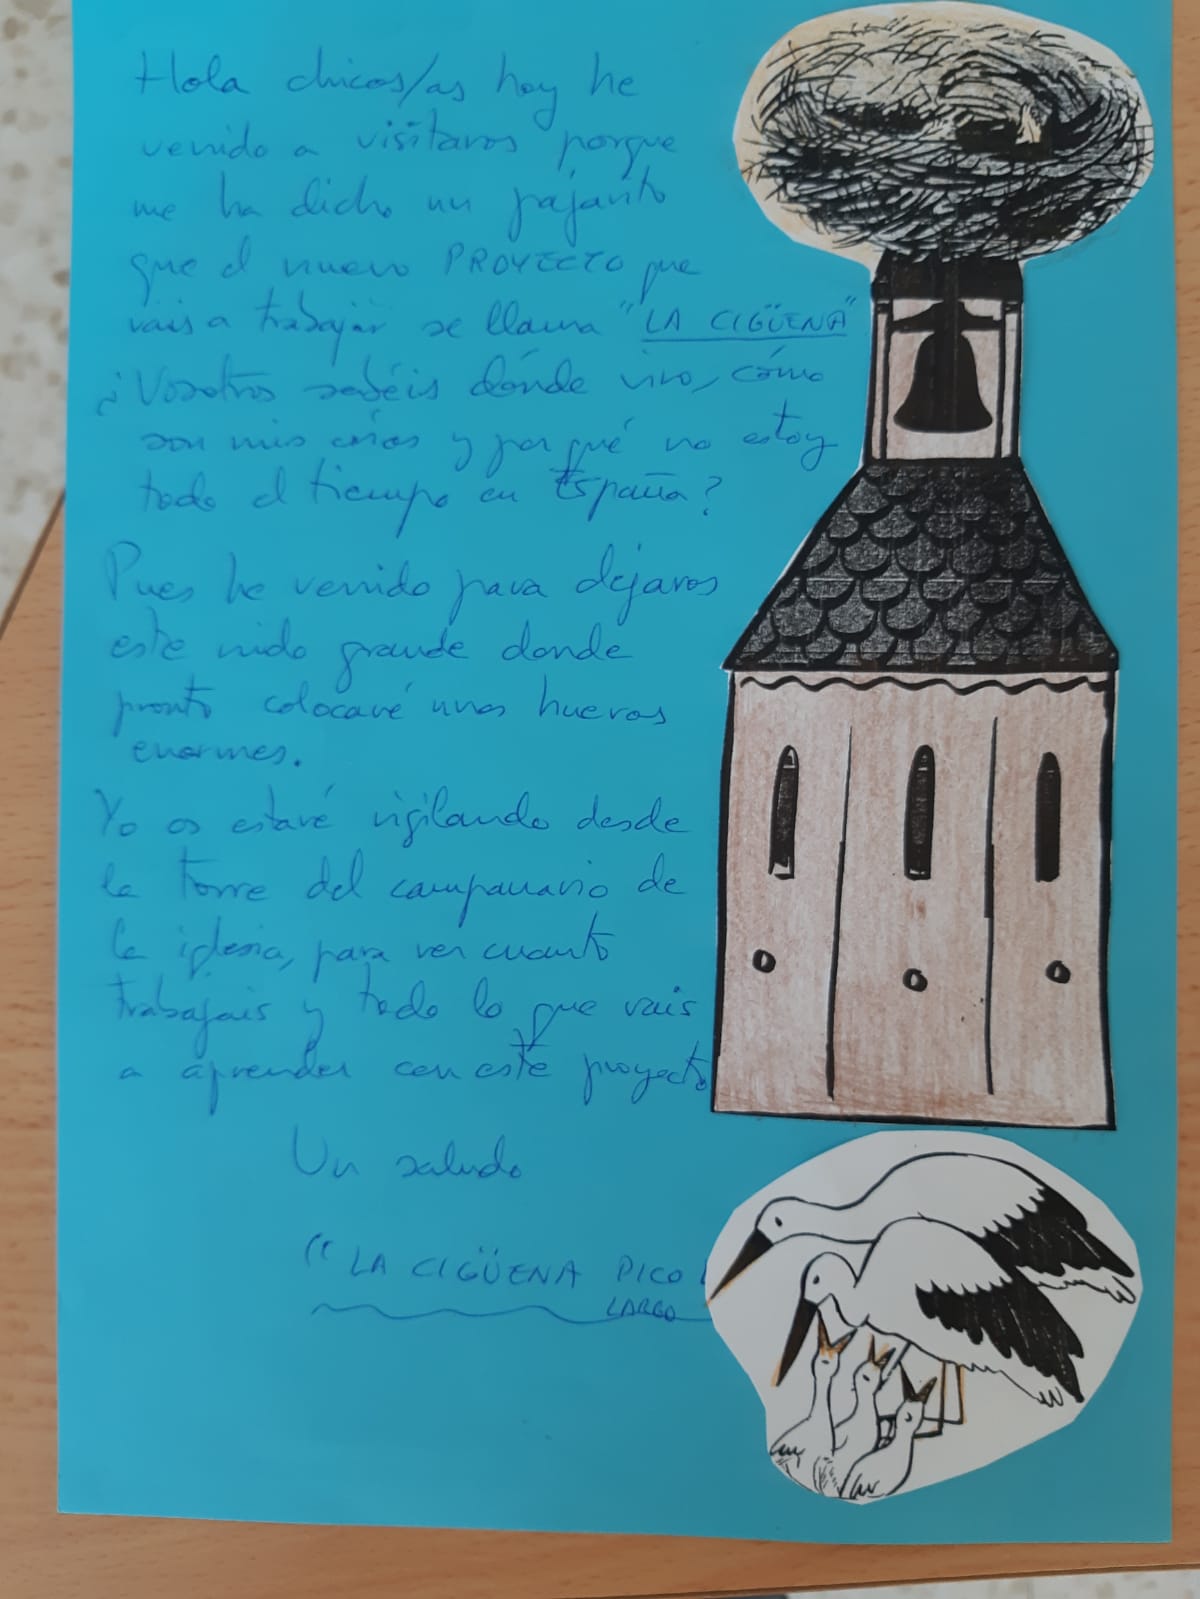 Hola chicos/as hoy he
venido a visitaros porque
me ha dicho un pajarito
que el nuevo PROYECTO que
vais a trabajar se llama "LA CIGÜEÑA"
¿Vosotros sabéis dónde vivo, cómo
son mis crías y por qué no estoy
todo el tiempo en España?
Pues he venido para dejaros
este nido grande donde
pronto colocaré unos huevos
enormes.
Yo os estaré vigilando desde
la torre del campanario de
la iglesia, para ver cuanto
trabajais y todo lo que vais
a aprender con este proyecto
Un saludo
"LA CIGÜEÑA PICO
LARGO